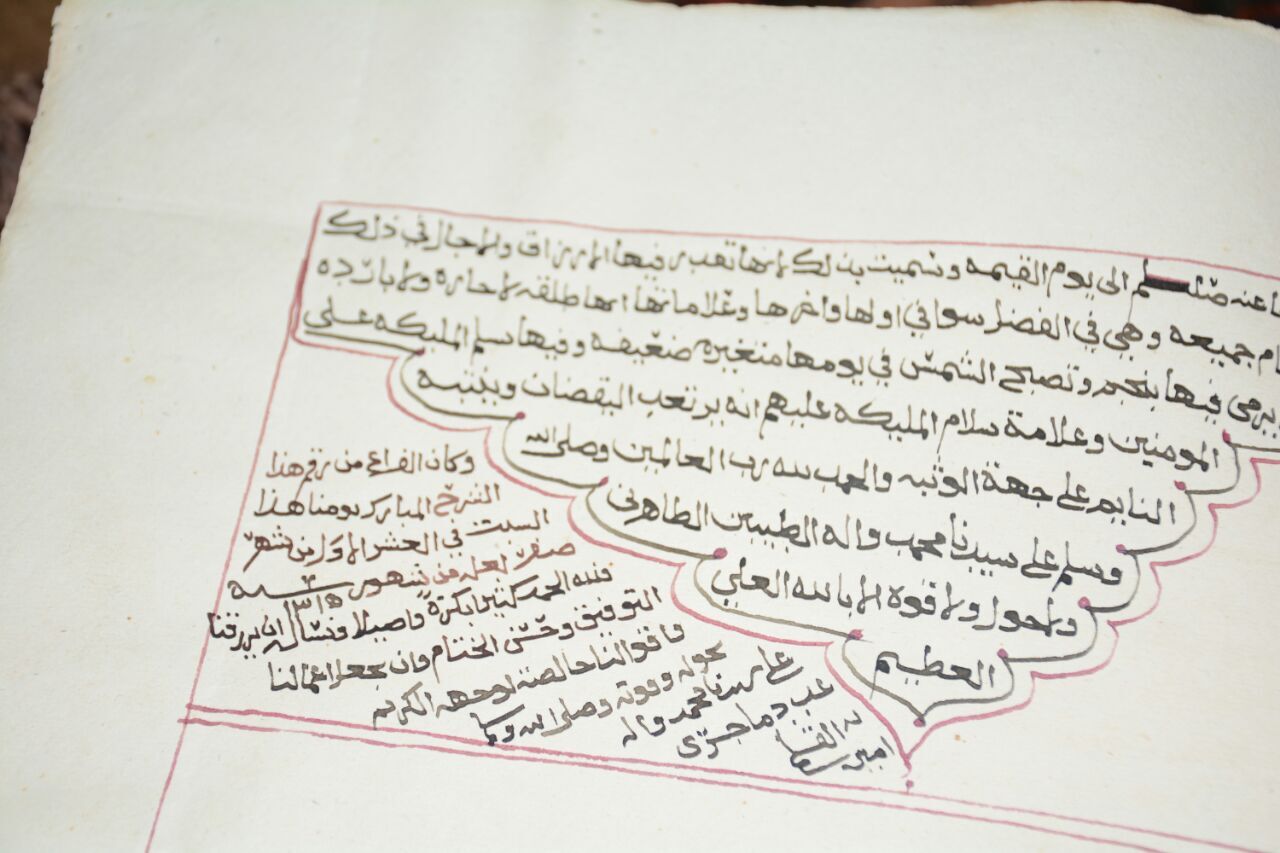 عنه صلسلم الى يوم القيمه وسميت بذلك لانها تقدر فيها الارزاق والاجال في ذلك
جميعه وهي في الفضل سوا في اولها واخرها وعلاماتها انها طلقه لا حاره ولا بارده
يرمى فيها بنجم وتصبح الشمس في يومها متغيره ضعيفه وفيها سلم المليكه على
المومنين وعلامة سلام المليكه عليهم انه يرتعب اليقضان وينتبه
النايم على جهة الوتبه والحمد لله رب العالمين وصلى الله
وسلم على سيدنا محمد واله الطيبين الطاهرين
ولا حول ولا قوة الا بالله العلي
العظيم
وكان الفراغ من رقم هذا
الشرح المبارك يومنا هذا
السبت في العشر الاول من شهر
صفر لعله من شهور سنه
١٣١٥ فلله الحمد كثيرا بكرة واصيلا ونسأله ان يرزقنا
التوفيق وحسن الختام وان يجعل اعمالنا
واقوالنا خالصة لوجهه الكريم
بحوله وقوته وصلى الله وسلم
على سيدنا محمد واله